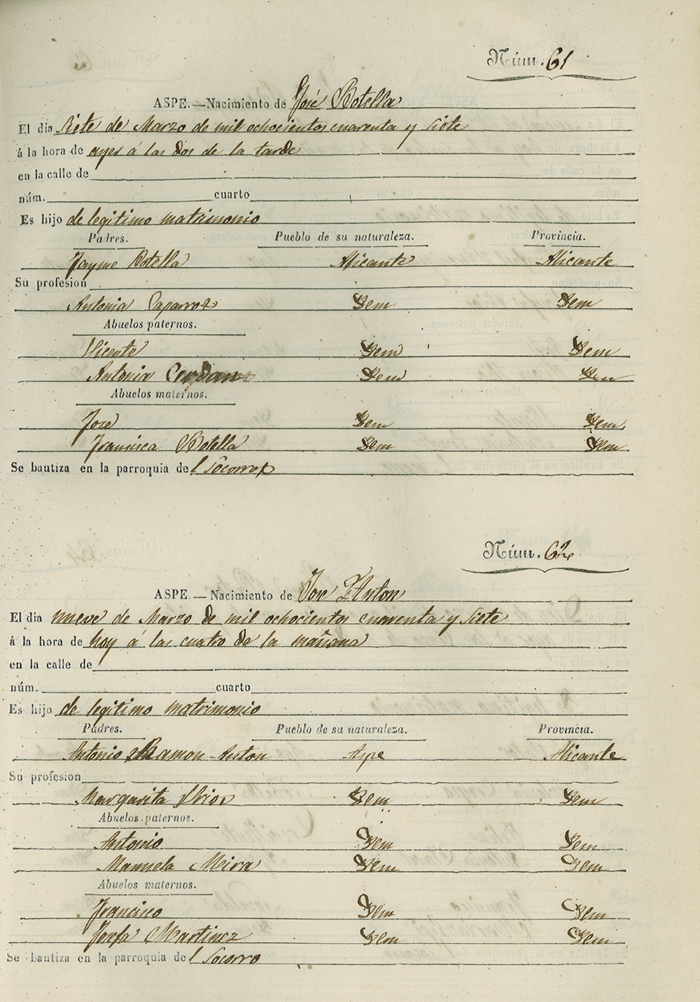 Núm. 61
ASPE.—Nacimiento de José Botella
El dia siete de Marzo de mil ochocientos cuarenta y siete
á la hora de ayer á las dos de la tarde
en la calle de
núm. cuarto
Es hijo de legitimo matrimonio
Padres. Pueblo de su naturaleza. Provincia.
Jayme Botella Alicante Alicante
Su profesion
Antonia Caparros Idem Idem
Abuelos paternos.
Vicente Idem Idem
Antonia Idem Idem
Abuelos maternos.
José Idem Idem
Francisca Botella Idem Idem
Se bautiza en la parroquia del Socorro
Núm. 62
ASPE.—Nacimiento de Anton
El dia nueve de Marzo de mil ochocientos cuarenta y siete
á la hora de hoy á las cuatro de la mañana
en la calle de
núm. cuarto
Es hijo de legitimo matrimonio
Padres. Pueblo de su naturaleza. Provincia.
Antonio Ramon Anton Aspe Alicante
Su profesion
Margarita Idem Idem
Abuelos paternos.
Antonio Idem Idem
Manuela Mira Idem Idem
Abuelos maternos.
Francisco Idem Idem
Josefa Martinez Idem Idem
Se bautiza en la parroquia del Socorro